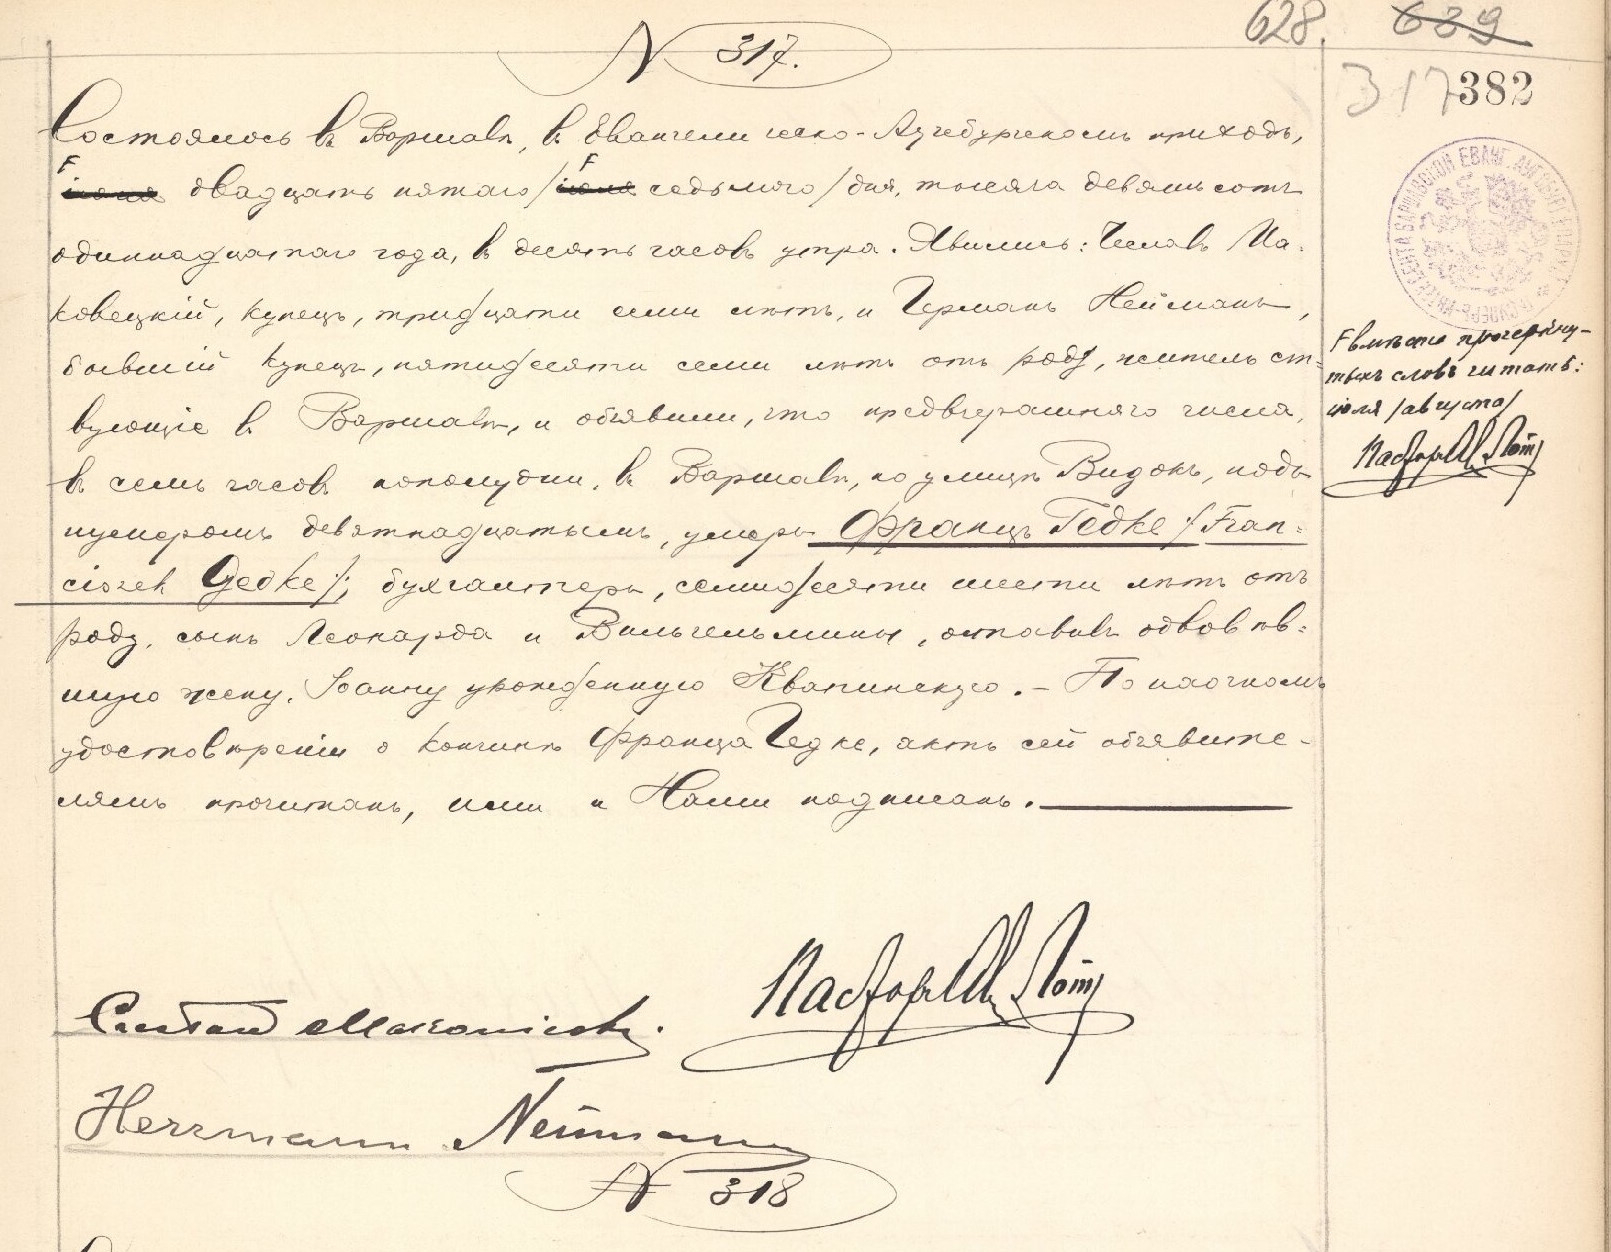 628. 639
N 317.
317 382
Состоялось въ Варшавѣ, въ Евангелическо-Аугсбургскомъ приходѣ,
F іюня двадцать пятаго /F іюля седьмаго/ дня, тысяча девятьсотъ
одиннадцатаго года, въ десять часовъ утра. Явились: Чеславъ Ма-
ковецкій, купецъ, тридцати семи лѣтъ, и Германъ Нейманъ,
бывшій купецъ, пятидесяти семи лѣтъ отъ роду, жительст-
вующіе въ Варшавѣ, и объявили, что предвчерашняго числа,
въ семь часовъ пополудни, въ Варшавѣ, по улицѣ Видокъ, подъ
нумеромъ девятнадцатымъ, умеръ Францъ Гедке /Fran-
ciszek Gedke/, бухгалтеръ, семидесяти шести лѣтъ отъ
роду, сынъ Леонарда и Вильгельмины, оставивъ овдовѣв-
шую жену, Іоанну урожденную Квапинскую. - По наочномъ
удостовѣреніи о кончинѣ Франца Гедке, актъ сей объявите-
лямъ прочитанъ, ими и Нами подписанъ.
F вмѣсто прочеркну-
тыхъ словъ читать:
іюля /августа/
Пасторъ Лотъ
Пасторъ Лотъ
Makowiecki.
Herrmann Neumann
N 318